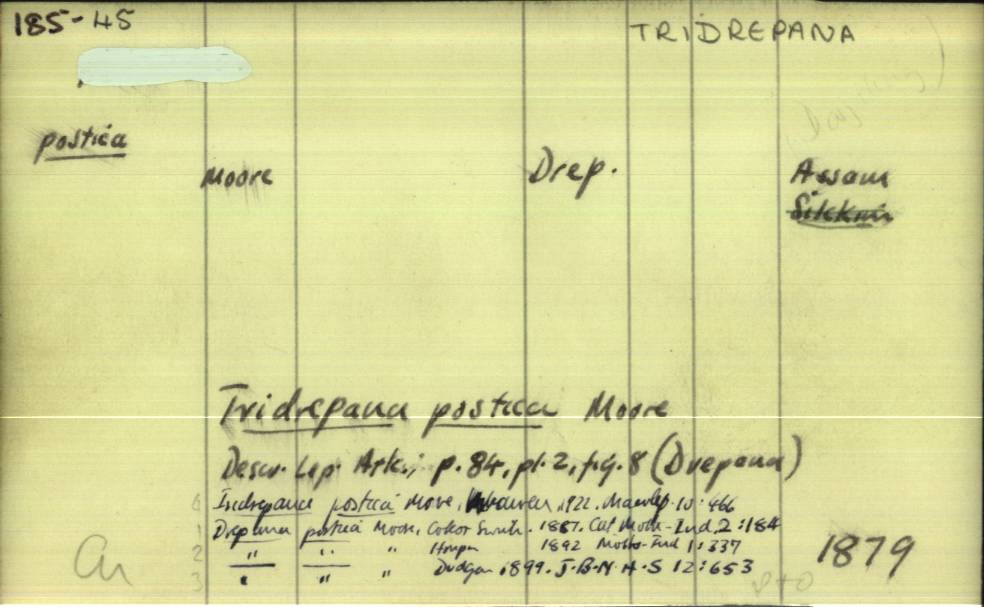 185-45 TRIDREPANA
postica
Moore Drep. Assam
Sikkim
Tridrepana postica Moore
Descr. Lep. Atk., p. 84, pl. 2, fig. 8 (Drepana)
postica Moore, 1922. Macrolep. 10: 466
1 Drepana postica Moore, Cotes & Swinh. 1887. Cat. Moths-Ind. 2: 184
2 " " " Hmpsn 1892 Moths-Ind 1: 337
3 " " " Dudgeon 1899. J. B. N. H. S 12: 653
1879